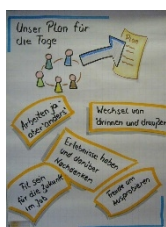 Unser Plan für
die Tage
Plan
Arbeiten ja,
aber "anders"
Wechsel von
drinnen und draußen
Erlebnisse haben
und darüber
Nachdenken
Fit sein
für die Zukunft
im Job
Freude am
Ausprobieren